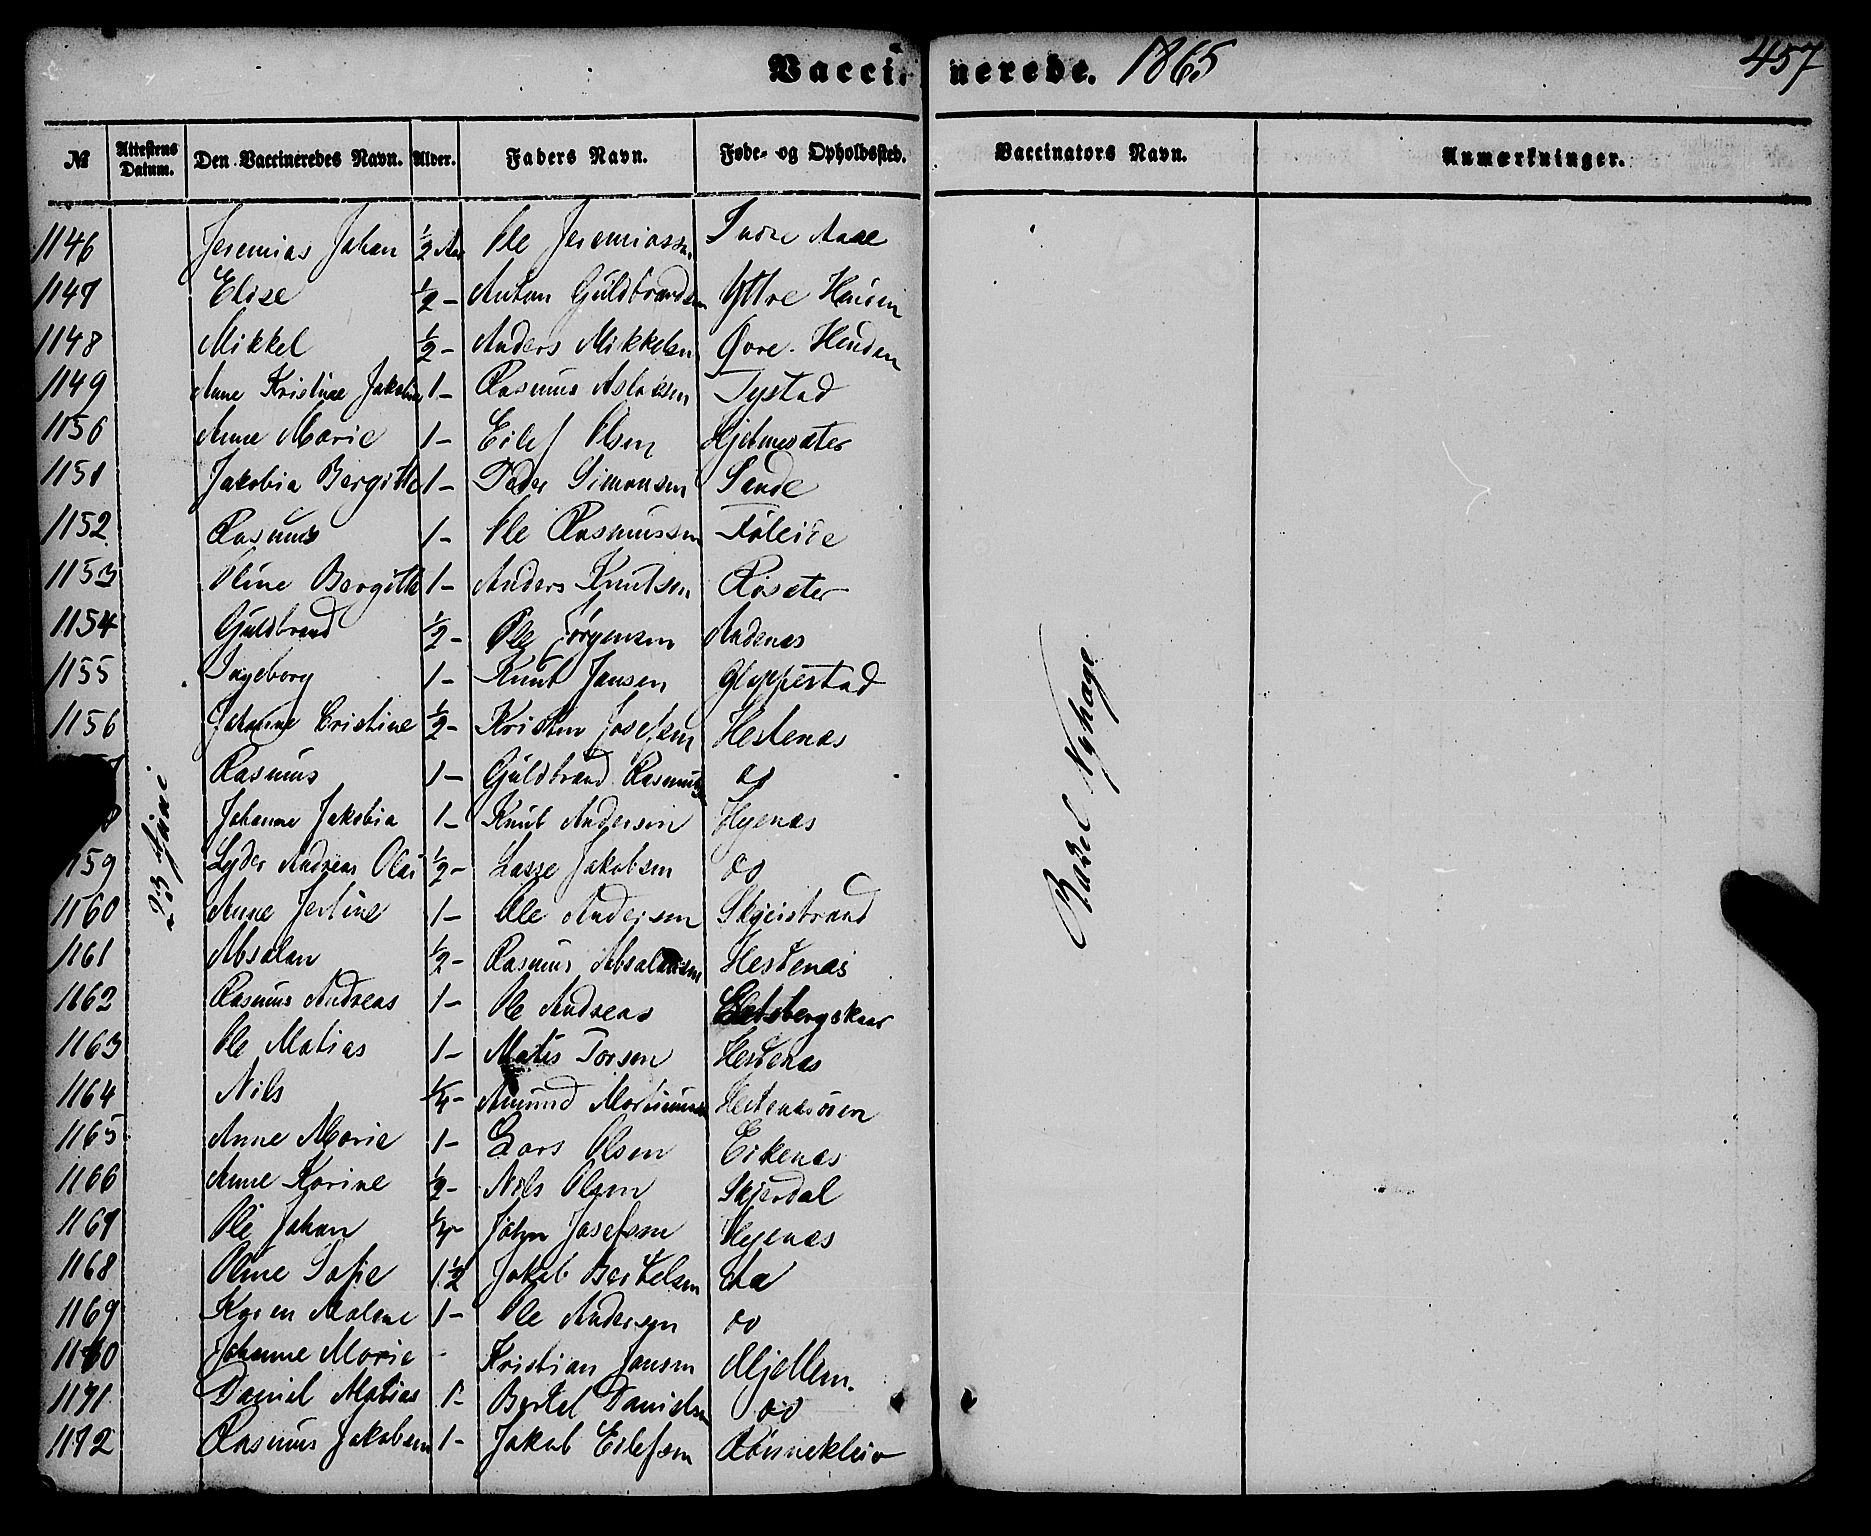 Vaccinerede. 1865 457
№ Attestens Datum. Den Vaccineredes Navn. Alder. Faders Navn. Føde- og Opholdssted. Vaccinators Navn. Anmærkninger.
23 Juni
Rasmus Nyhage
1146 Jeremias Johan ½ Aar Ole Jeremiassen Indre Aase
1147 Elise ½ - Anton Guldbrandsen Yttre
1148 Mikkel ½ - Anders Mikkelsen Øvre
1149 Anne Kristine Jakobine 1 - Rasmus Aslaksen Tystad
1150 Anne Marie 1 - Eilef Olsen Hjelmesæter
1151 Jakobia Bergitte 1 - Peder Simonsen Sande
1152 Rasmus 1 - Ole Rasmussen Føleide
1153 Oline Bergitte 1 - Anders Knutsen Røsæter
1154 Guldbrand ½ - Ole Jørgensen Andenæs
1155 Ingeborg 1 - Knut Jansen Gloppestad
1156 Johanne Cristine ½ - Kristen Josefsen Hestenæs
Rasmus 1 - Guldbrand Rasmussen do
8 Johanne Jakobia 1 - Knut Andersen Hyenæs
159 Lyder Andreas Olai ½ - Lasse Jakobsen do
1160 Anne Jertine 1 - Ole Andersen Skjeistrand
1161 Absalon ½ - Rasmus Absalonsen Hestenæs
1162 Rasmus Andreas 1 - Ole Andreas
1163 Ole Matias 1 - Matis Torsen Hestenæs
1164 Nils ¼ - Amund Hestenæsøren
1165 Anne Marie 1 - Lars Olsen Eikenæs
1166 Anne Karine ½ - Nils Olsen Skjerdal
1167 Ole Johan ¼ - John Josefsen Hyenæs
1168 Oline Sofie 1½ Jakob Bertelsen Aa
1169 Karen Malene 1 - Ole Andersen do
1170 Johanne Marie - Kristian Jansen Mjellem.
1171 Daniel Matias 1 - Bertel Danielsen do
1172 Rasmus Jakobsen 1 - Jakob Eilefsen Rønnekleiv